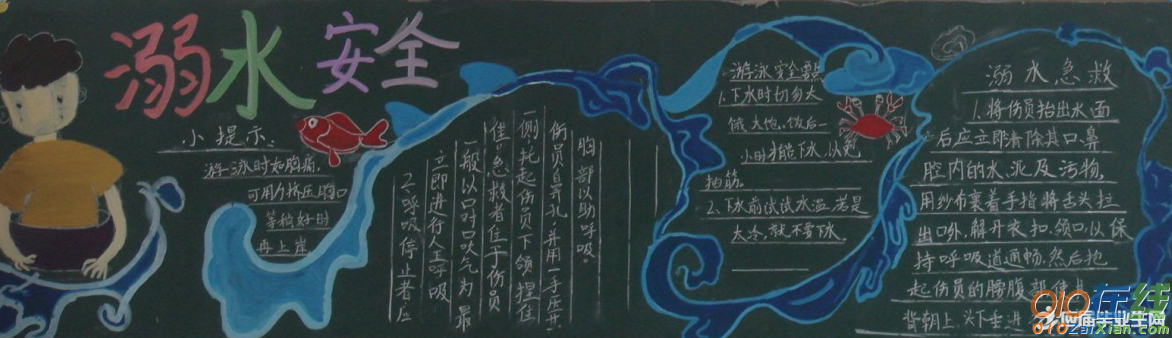 溺水安全
小提示
游泳时如胸痛,
可用力挤压胸口
等稍好时
再上岸
2、呼吸停止者应
立即进行人工呼吸
一般以口对口吹气为最
佳。急救者位于伤员
一侧,托起伤员下颌,捏住
伤员鼻孔,并用一手压其
胸部以助呼吸。
游泳安全要点
1.下水时切勿太
饿、太饱。饭后一
小时才能下水,以免
抽筋。
2.下水前试试水温,若是
太冷,就不要下水
溺水急救
1.将伤员抬出水面
后应立即清除其口、鼻
腔内的水、泥及污物,
用纱布裹着手指将舌头拉
出口外,解开衣扣、领口,以保
持呼吸道通畅,然后抱
起伤员的腰腹部,使其
背朝上、头下垂进
010在线
010zaixian.com
应届毕业生网